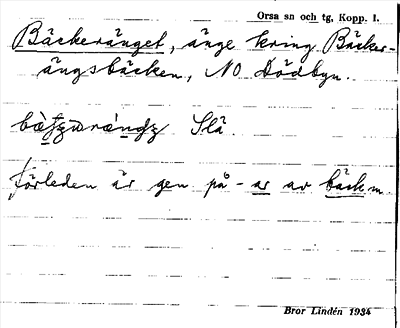 Orsa sn och tg, Kopp. l.
Bäckeränget, änge kring Bäcker-
ängsbäcken, NO Dödbyn.
Slä.
förleden är gen på -ar av bäck m
Bror Lindén 1934